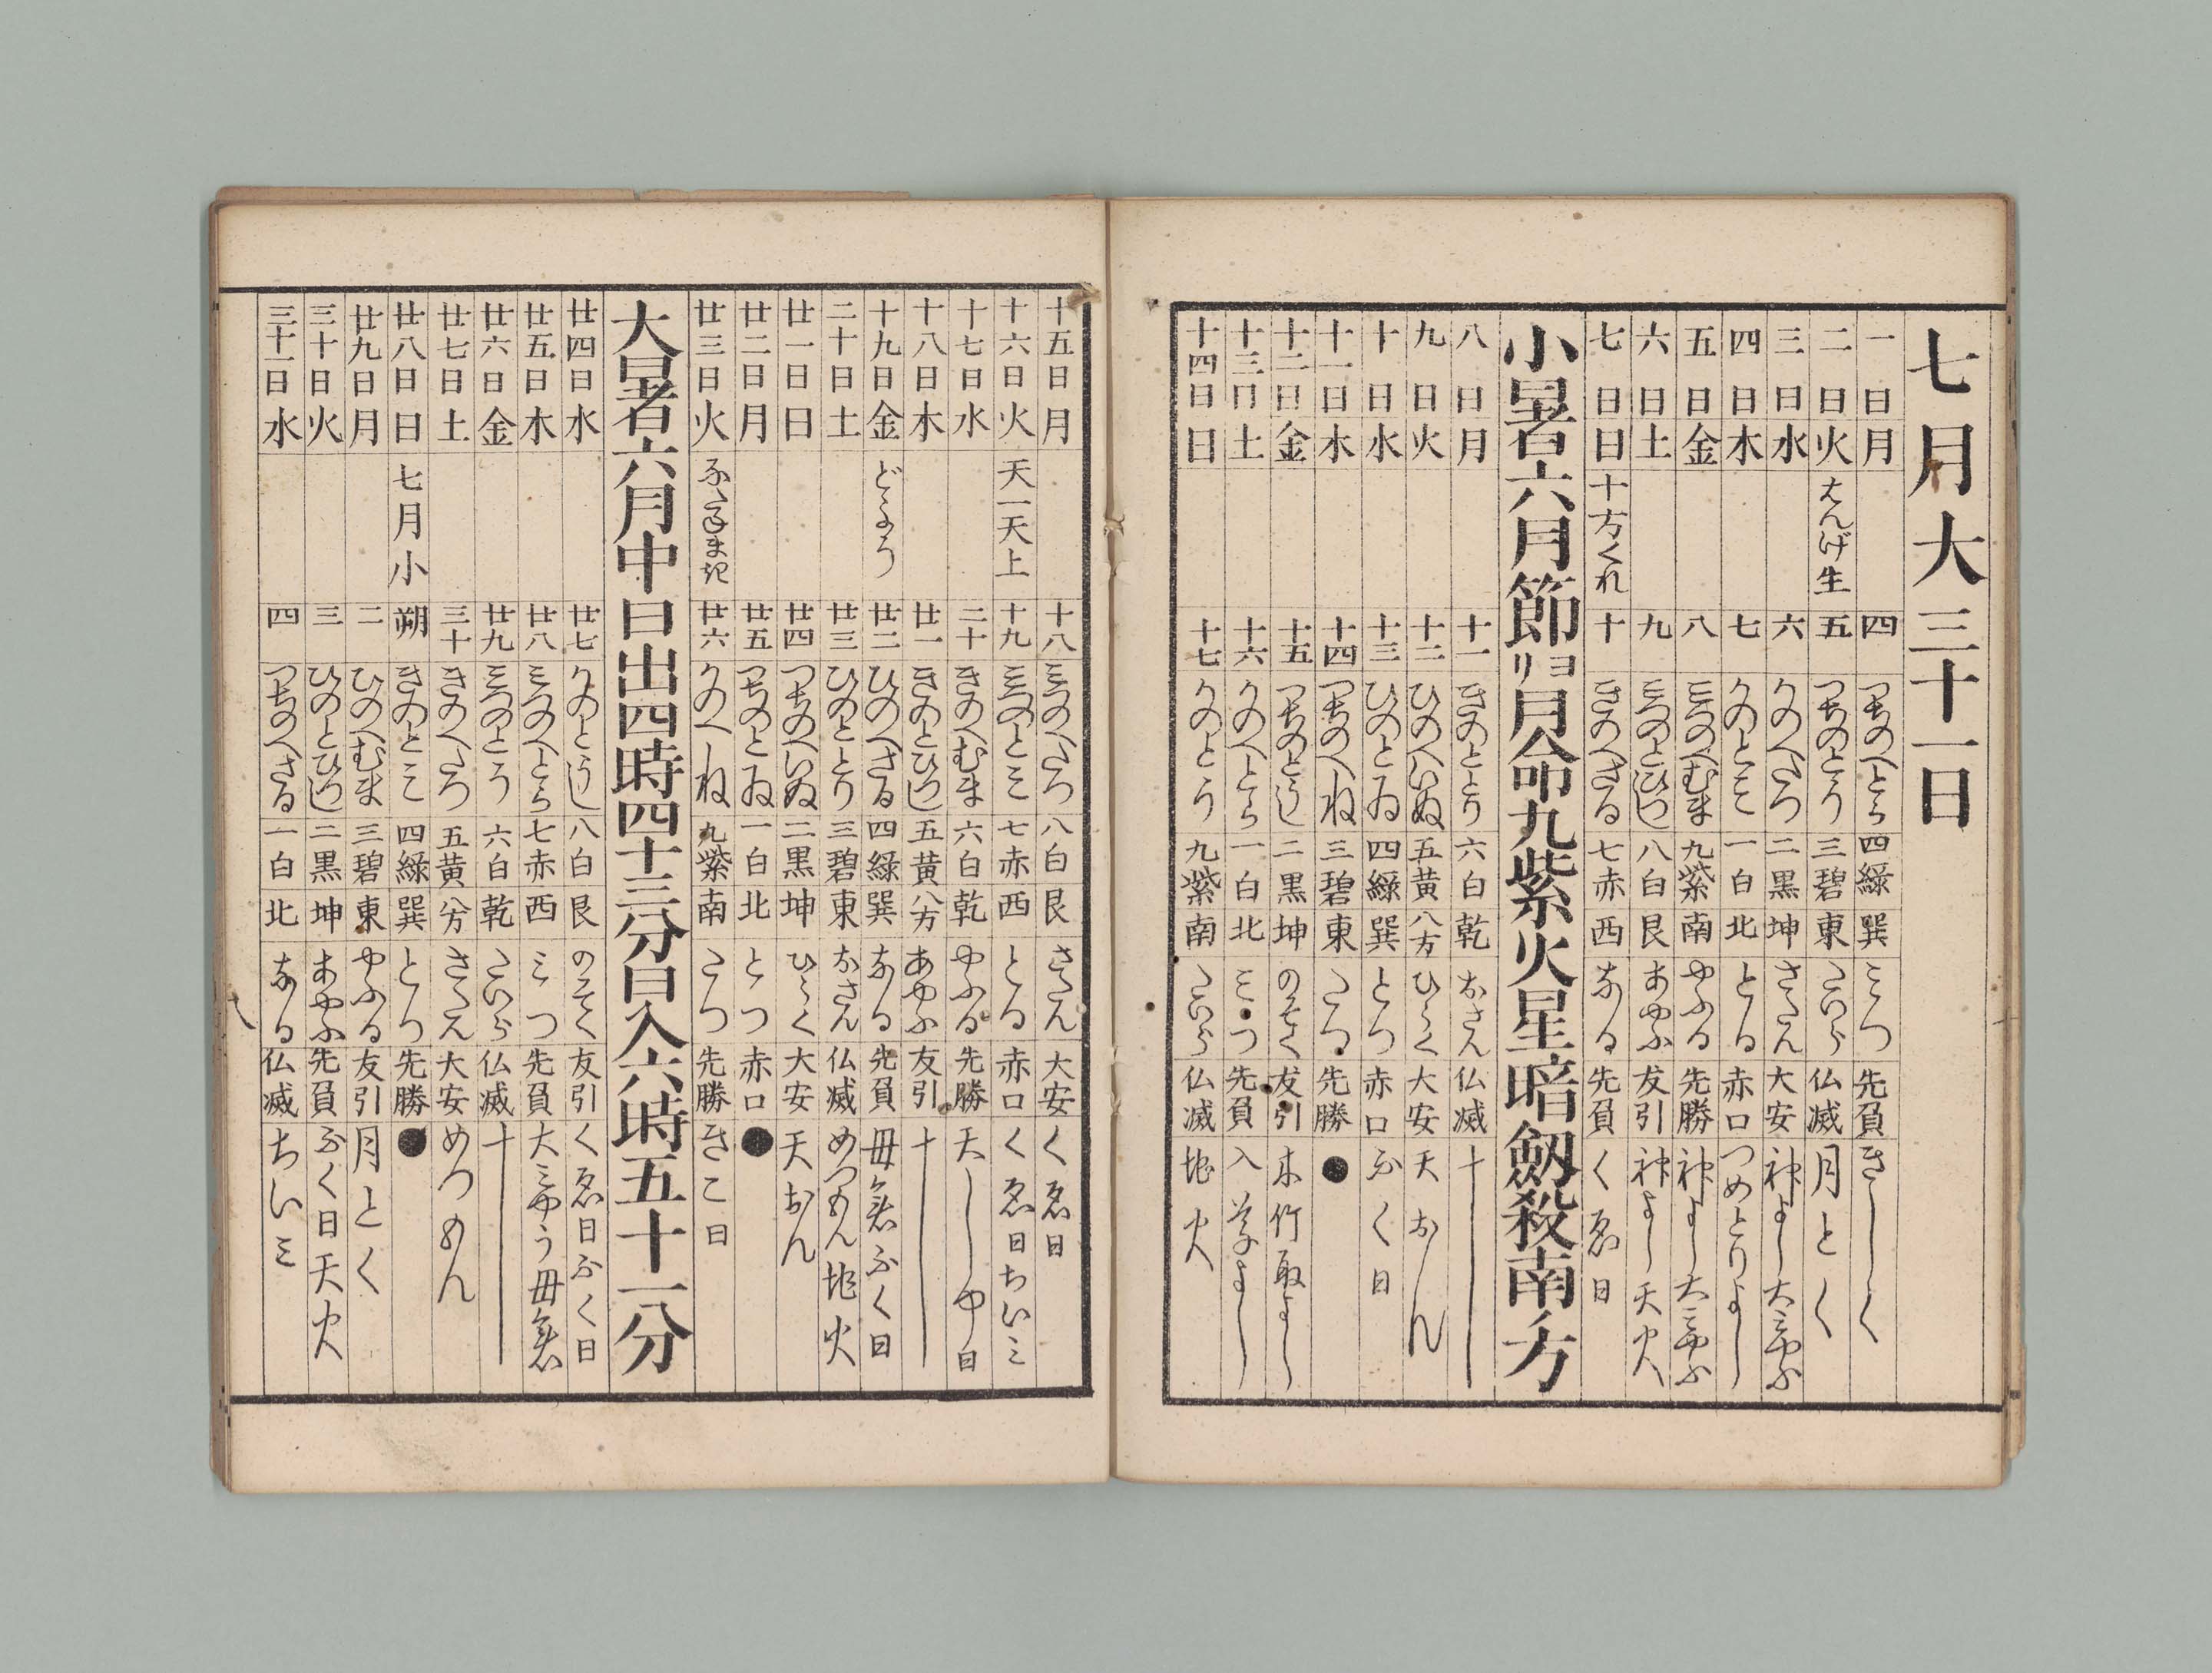 七月大三十一日
一日月 四 つちのへとら 四緑巽 みつ 先負 きしく
二日火 はんげ生 五 つちのとう 三碧東 たいら 仏滅 月とく
三日水 六 かのへたつ 二黒坤 さたん 大安 神よし大みやふ
四日木 七 かのとみ 一白北 とる 赤口 つめとりよし
五日金 八 みつのへむま 九紫南 やふる 先勝 神よし大みやふ
六日土 九 みつのとひつし 八白艮 あやふ 友引 神よし天火
七日日 十方くれ 十 きのへさる 七赤西 なる 先負 くゑ日
小暑六月節ヨリ月命九紫火星暗劔殺南ノ方
八日月 十一 きのととり 六白乾 おさん 仏滅 十し
九日火 十二 ひのへいぬ 五黄八方 ひらく 大安 天おん
十日水 十三 ひのとゐ 四緑巽 とつ 赤口 ふく日
十一日木 十四 つちのへね 三碧東 たつ 先勝 ●
十二日金 十五 つちのとうし 二黒坤 のそく 友引 木竹取よし
十三日土 十六 かのへとら 一白北 みつ 先負 入学よし
十四日日 十七 かのとう 九紫南 たいら 仏滅 地火
十五日月 十八 みつのへたつ 八白艮 さたん 大安 くゑ日
十六日火 天一天上 十九 みつのとみ 七赤西 とる 赤口 くゑ日ちいミ
十七日水 二十 きのへむま 六白乾 やふる 先勝 天しや日
十八日木 廿一 きのとひつし 五黄八方 あやふ 友引 十し
十九日金 どよう 廿二 ひのへさる 四緑巽 なる 先負 母倉ふく日
二十日土 廿三 ひのととり 三碧東 おさん 仏滅 めつもん地火
廿一日日 廿四 つちのへいぬ 二黒坤 ひらく 大安 天おん
廿二日月 廿五 つちのとゐ 一白北 とつ 赤口 ●
廿三日火 廿六 かのへね 九紫南 たつ 先勝 きこ日
大暑六月中日出四時四十三分日入六時五十一分
廿四日水 廿七 かのとうし 八白艮 のそく 友引 くゑ日ふく日
廿五日木 廿八 みつのへとら 七赤西 みつ 先負 大みやう母倉
廿六日金 廿九 みつのとう 六白乾 たいら 仏滅 十し
廿七日土 三十 きのへたつ 五黄八方 さたん 大安 めつもん
廿八日日 七月小 朔 きのとみ 四緑巽 とつ 先勝 ●
廿九日月 二 ひのへむま 三碧東 やふる 友引 月とく
三十日火 三 ひのとひつし 二黒坤 あやふ 先負 ふく日天火
三十一日水 四 つちのへさる 一白北 なる 仏滅 ちいミ
八